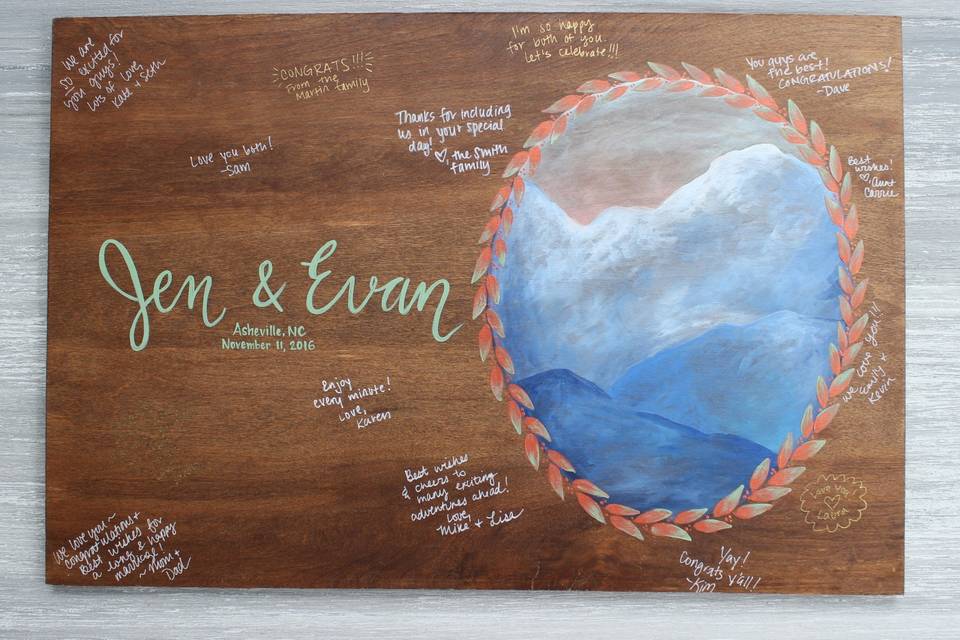 we are
so excited for
you guys!
lots of love,
Kate + Seth
CONGRATS!!!
From the
Martin family
I'm so happy
for both of you.
let's celebrate!!!
You guys are
the best!
CONGRATULATIONS!
-Dave
Thanks for including
us in your special
day!
♡ the Smith
family
Love you both!
-Sam
Best
wishes!
♡ Aunt
Carrie
Jen & Evan
Asheville, NC
November 11, 2016
we love you!!!
Emily +
Kevin
Enjoy
every minute!
Love,
Karen
Best wishes
& cheers to
many exciting
adventures ahead!
Love,
Mike + Lisa
Love you
♡
Laura
we love you~
congratulations +
Best wishes for
a long & happy
marriage!
~ Mom +
Dad
Yay!
Congrats y'all!
-Kim